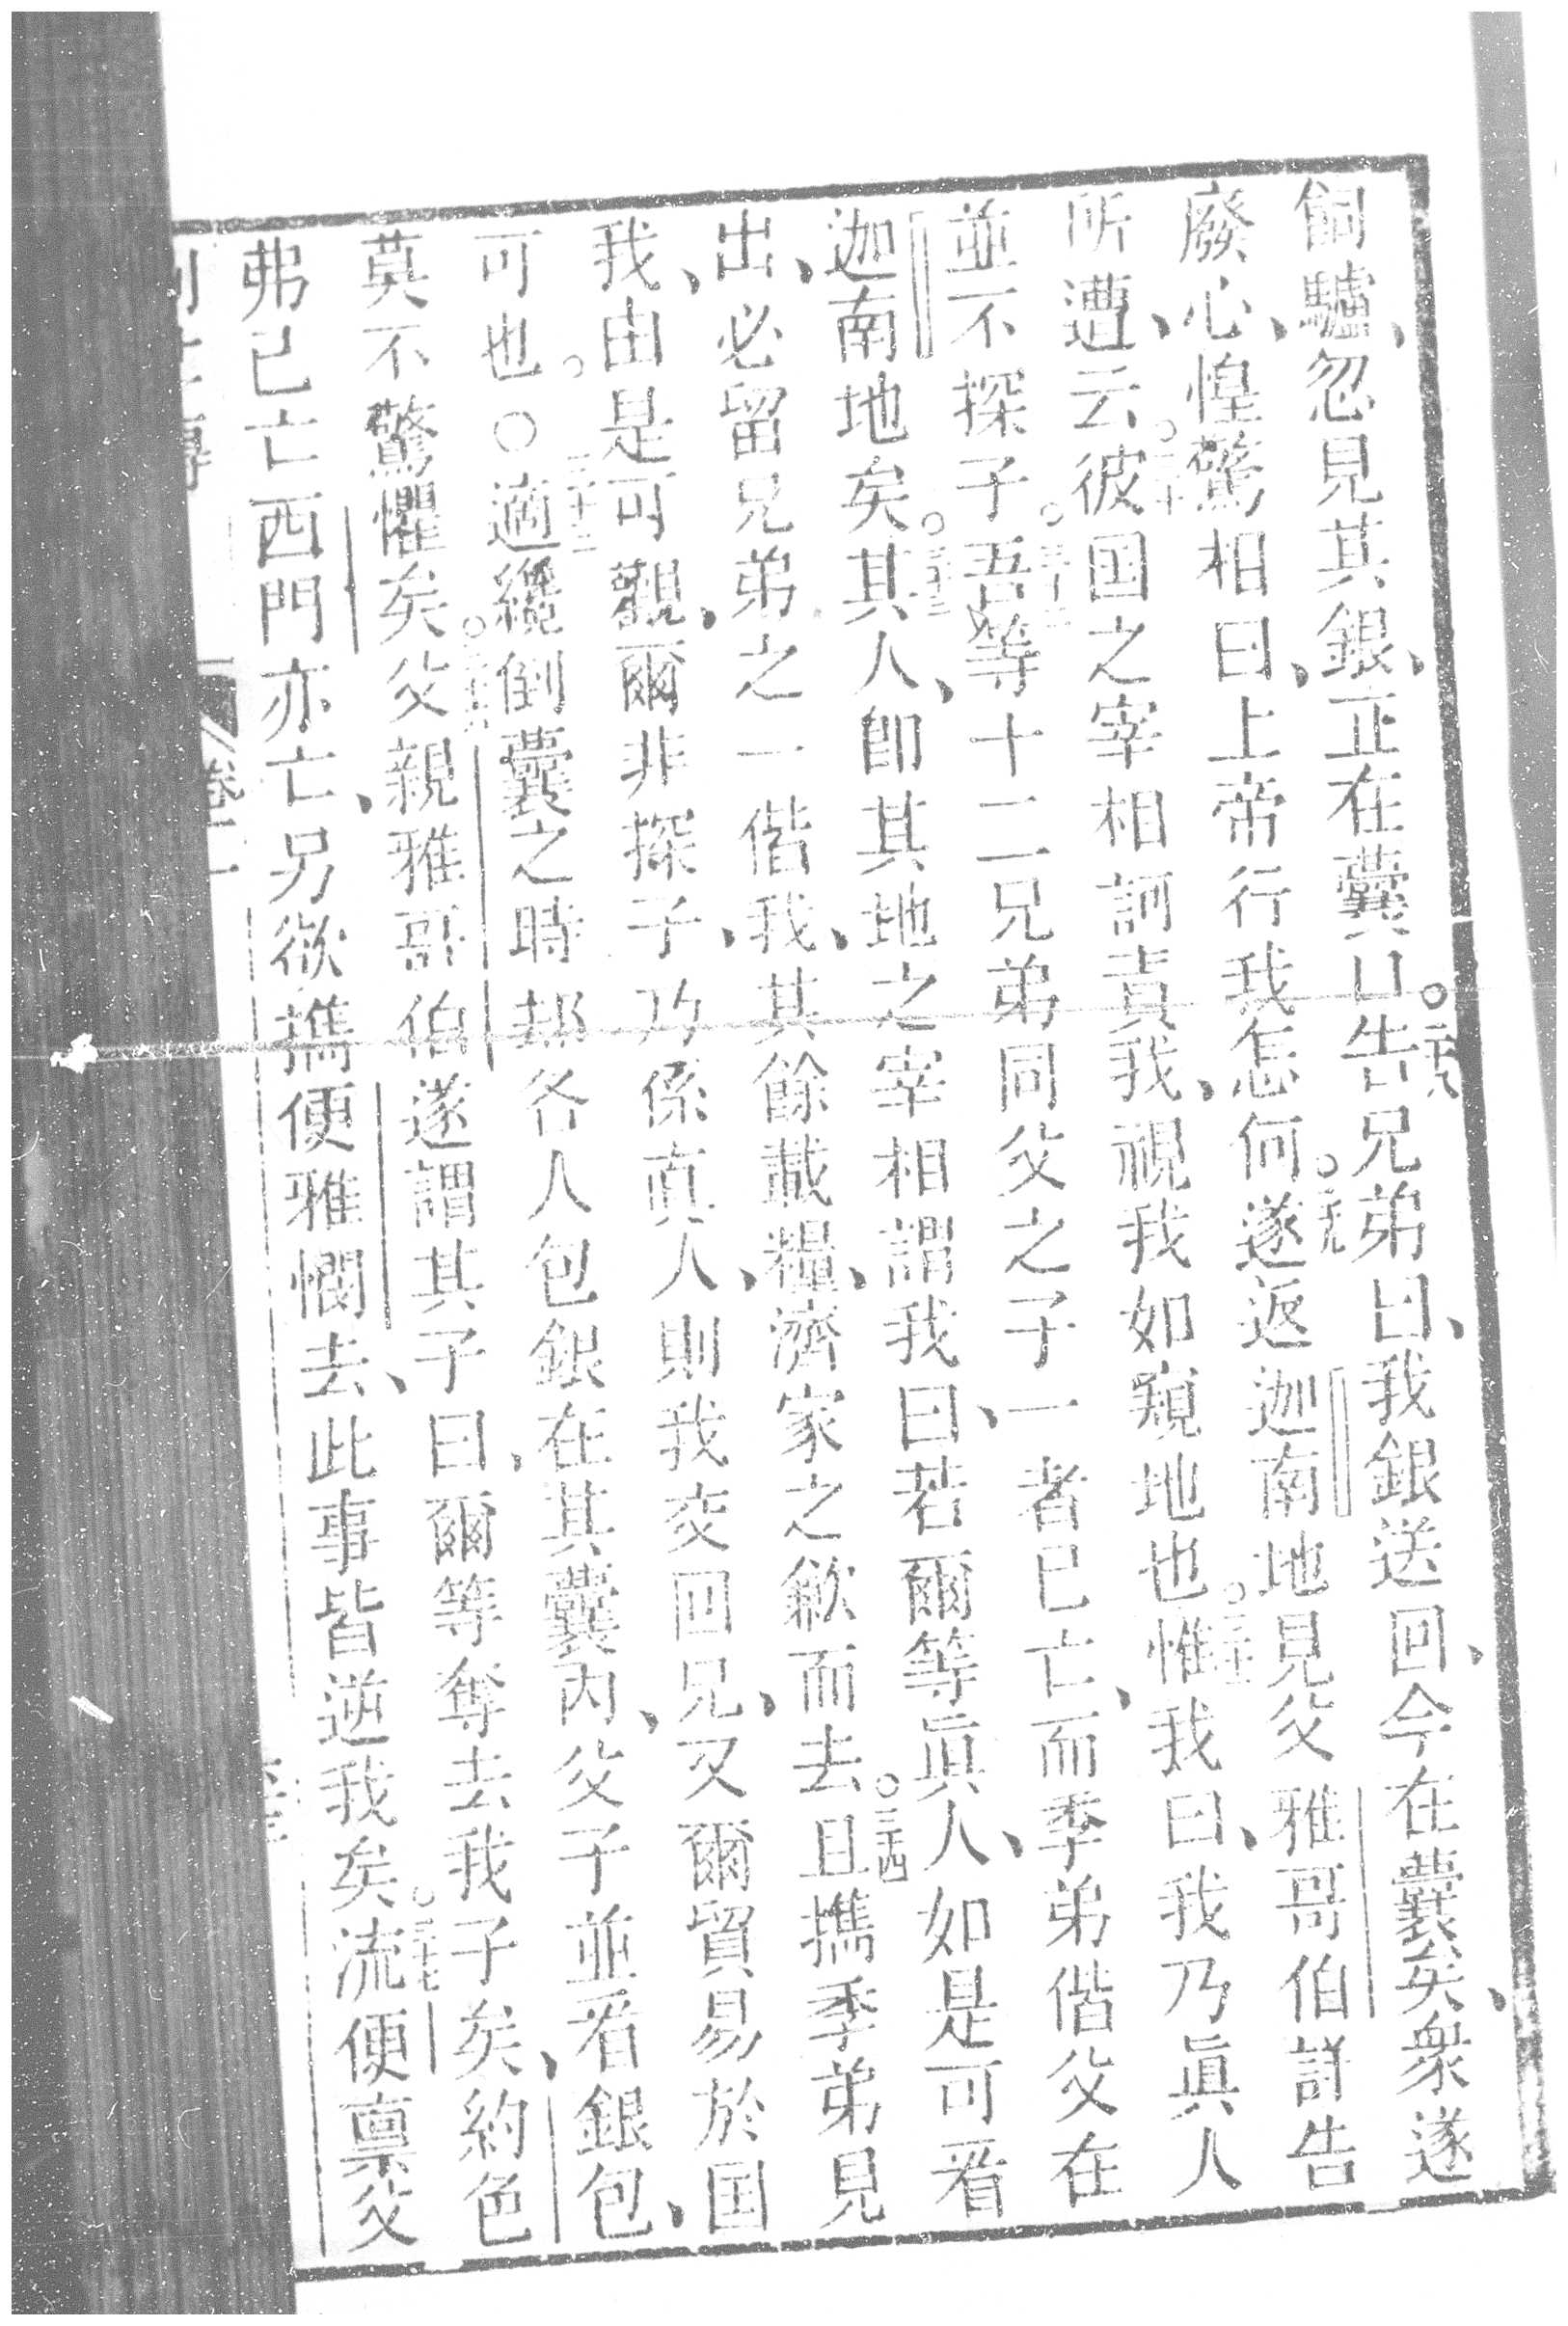 飼驢、忽見其銀、正在囊口。二十八告兄弟曰、我銀送回、今在囊矣、衆遂
廢心、惶驚相曰、上帝行我怎何。二十九遂返迦南地見父雅哥伯詳告
所遭、云。三十彼国之宰相訶責我、視我如窺地也。三十一惟我曰、我乃眞人
並不探子。三十二吾等十二兄弟同父之子一者已亡、而季弟偕父在
迦南地矣。三十三其人、卽其地之宰相謂我曰、若爾等眞人、如是可看
出、必留兄弟之一偕我、其餘載糧、濟家之歉而去。三十四且攜季弟見
我、由是可觀、爾非探子、乃係真人、則我交回兄、又爾貿易於国
可也。〇三十五適纔倒囊之時却各人包銀在其囊內、父子並看銀包、
莫不驚懼矣。三十六父親雅哥伯遂謂其子曰、爾等奪去我子矣、約色
弗已亡西門亦亡、另欲攜便雅憫去、此事皆逆我矣。三十七流便禀父